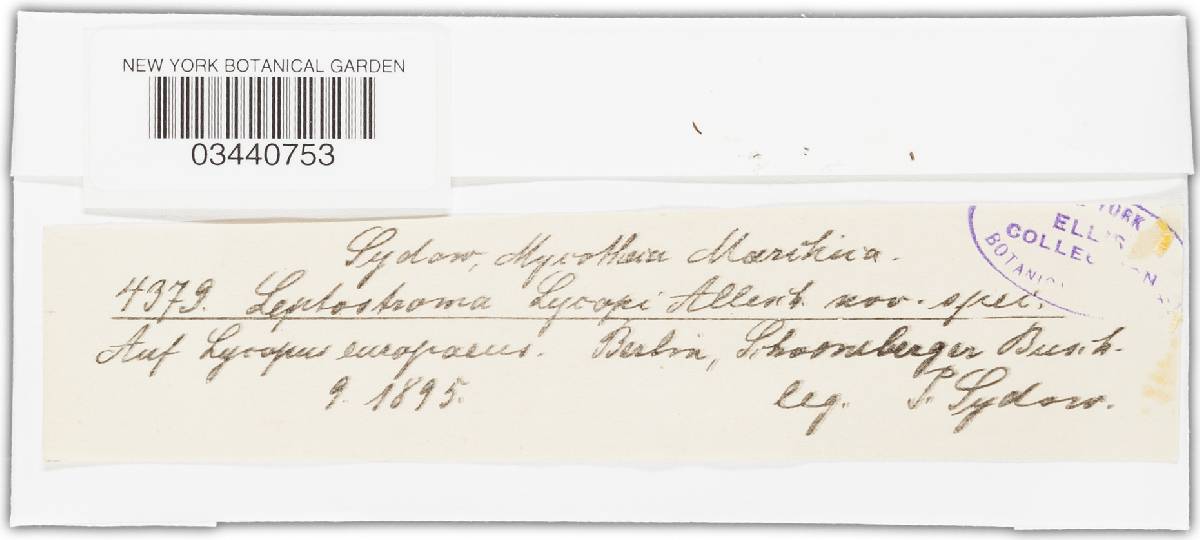 NEW YORK BOTANICAL GARDEN
03440753
YORK
ELLIS
COLLECTION
BOTANI
Sydow, Mycotheca Marchica.
4379. Leptostroma Lycopi Allesch. nov. spec.
Auf Lycopus europaeus. Berlin, Schooneberger Busch.
9. 1895. leg. P. Sydow.